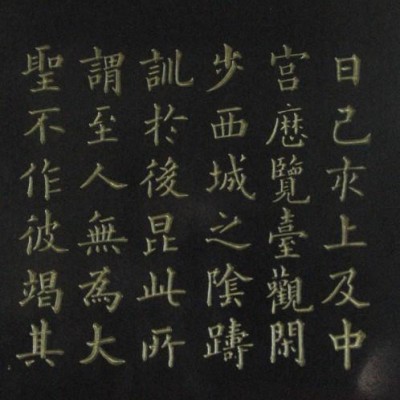 日己亥上及中
宮歷覽臺觀閑
步西城之陰躊
訓於後昆此所
謂至人無為大
聖不作彼竭其